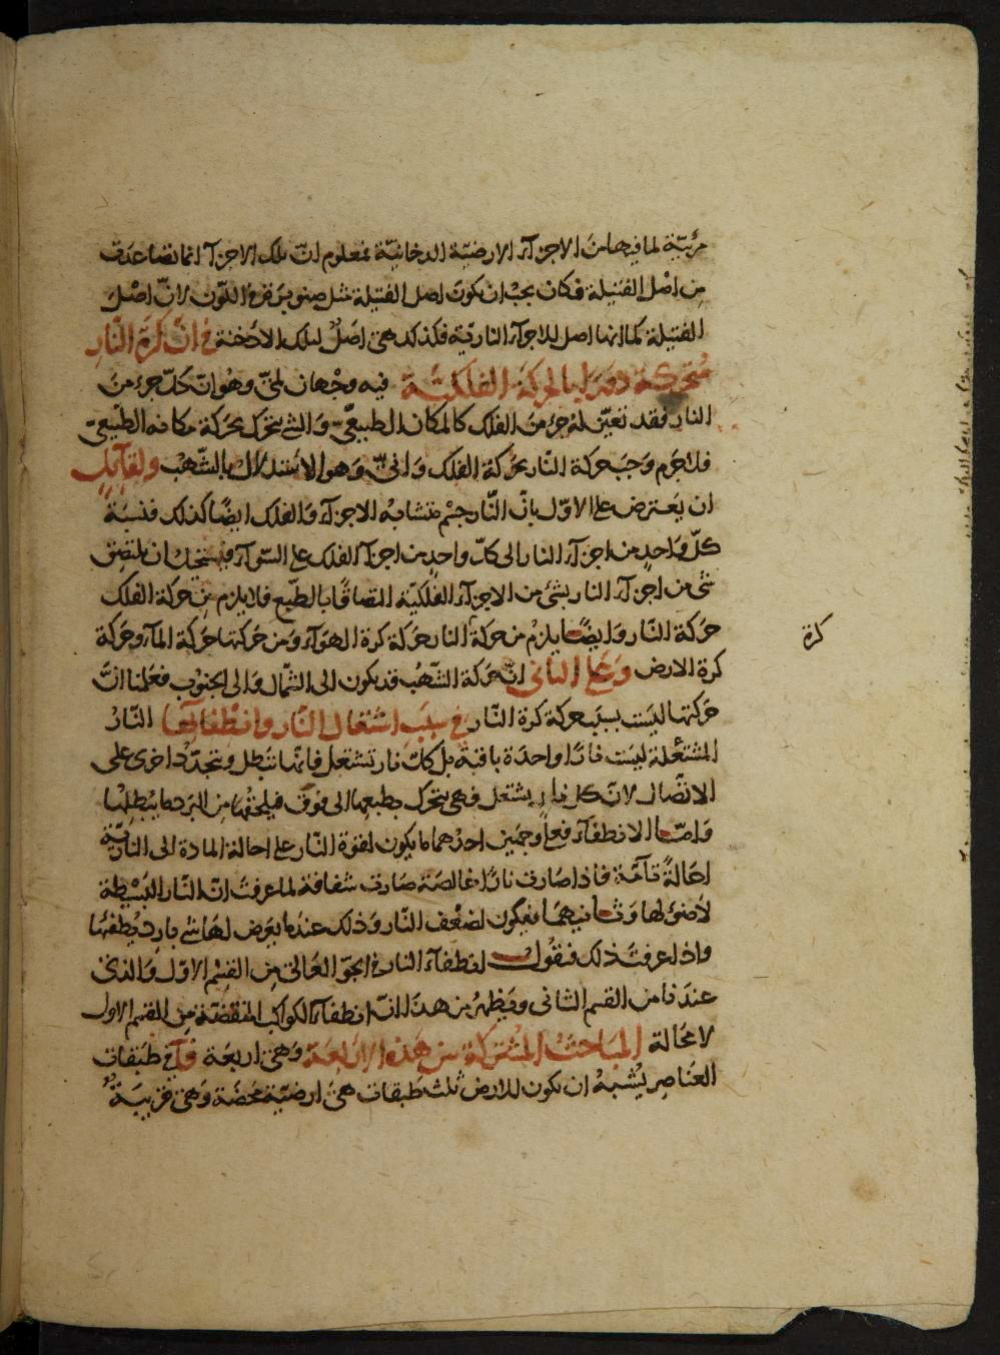 مرئيّة لما فيها من الاجزآء الارضيّة الدخانيّة فمعلوم انّ تلك الاجزآ انما تصاعدت
من اصل الفتيلة فكان يجب ان يكون اصل الفتيلة مثل صنوبرتي اللون لانّ اصل
الفتيلة كما انها اصل للاجزآء الناريّة فكذلك هى اصلٌ لتلك الادخنة في انّ كرة النّار
متحركة دوريا بالحركة الفلكيّة فيه وجهان لمّى وهو ان كلّ جزء من
النار فقد تعيّن له جزء من الفلك كالمكان الطبيعّى والشئ يتحرك بحركة مكانه الطبيعى
فلا جرم وجب حركة النار بحركة الفلك وانىّ وهو الاستدلال بالشّهب ولقآئلٍ
ان يعترض على الاوّل بانّ النّار جسم متشابه الاجزآء والفلك ايضًا كذلك فنسبة
كلّ واحد من اجزآء النار الى كلّ واحد من اجزآ الفلك على السّوآء فيستحيل ان يلتصق
شئ من اجزآء النار بشئ من الاجزآء الفلكيّة التصاقًا بالطّبع فلا يلزم من حركة الفلك
حركة النّار وايضًا يلزم من حركة النار حركة كرة الهوآء ومن حركتها حركة المآء وحركة
كرة
كرة الارض وعلى الثانى انّ حركة الشّهب قد يكون الى الشّمال والى الجنوب فعلمنا انّ
حركتها ليست بسبب حركة كرة النّار في سبب اشتعال النّار وانطفائها النّارُ
المشتعلة ليست نارًا واحدة باقية بل كلّ نار تشتعل فانّها تبطل ويتجدّد اخرى على
الاتّصال لانّ كل نار يشتعل فهى يتحرك بطبعها الى فوق فيلحقها من البرد ما يبطلها
وامّا الانطفآء فعلى وجهين احدهما ما يكون لقوة النّار على احالة المادة الى الناريّة
احالةً تآمّة فاذا صارت نارًا خالصة صارت شفافة لما عرفتَ انّ النّار البسيطة
لا ضوء لها وثانيهما فيكون لضعف النّار وذلك عندما يعرض لها شئ بارد يطفئها
واذا عرفت ذلك فنقول انطفآء النار في الجوّ العالى من القسم الاوّل والذى
عندنا من القسم الثانى ويظهر من هذا انّ انطفآء الكواكب المنقضّة من القسم الاول
لا محالة المباحث المشتركة من هذه الاربعة وهى اربعة آ في طبقات
العناصر يشبه ان يكون للارض ثلث طبقات هى ارضيّة محضة وهى قريبةٌ